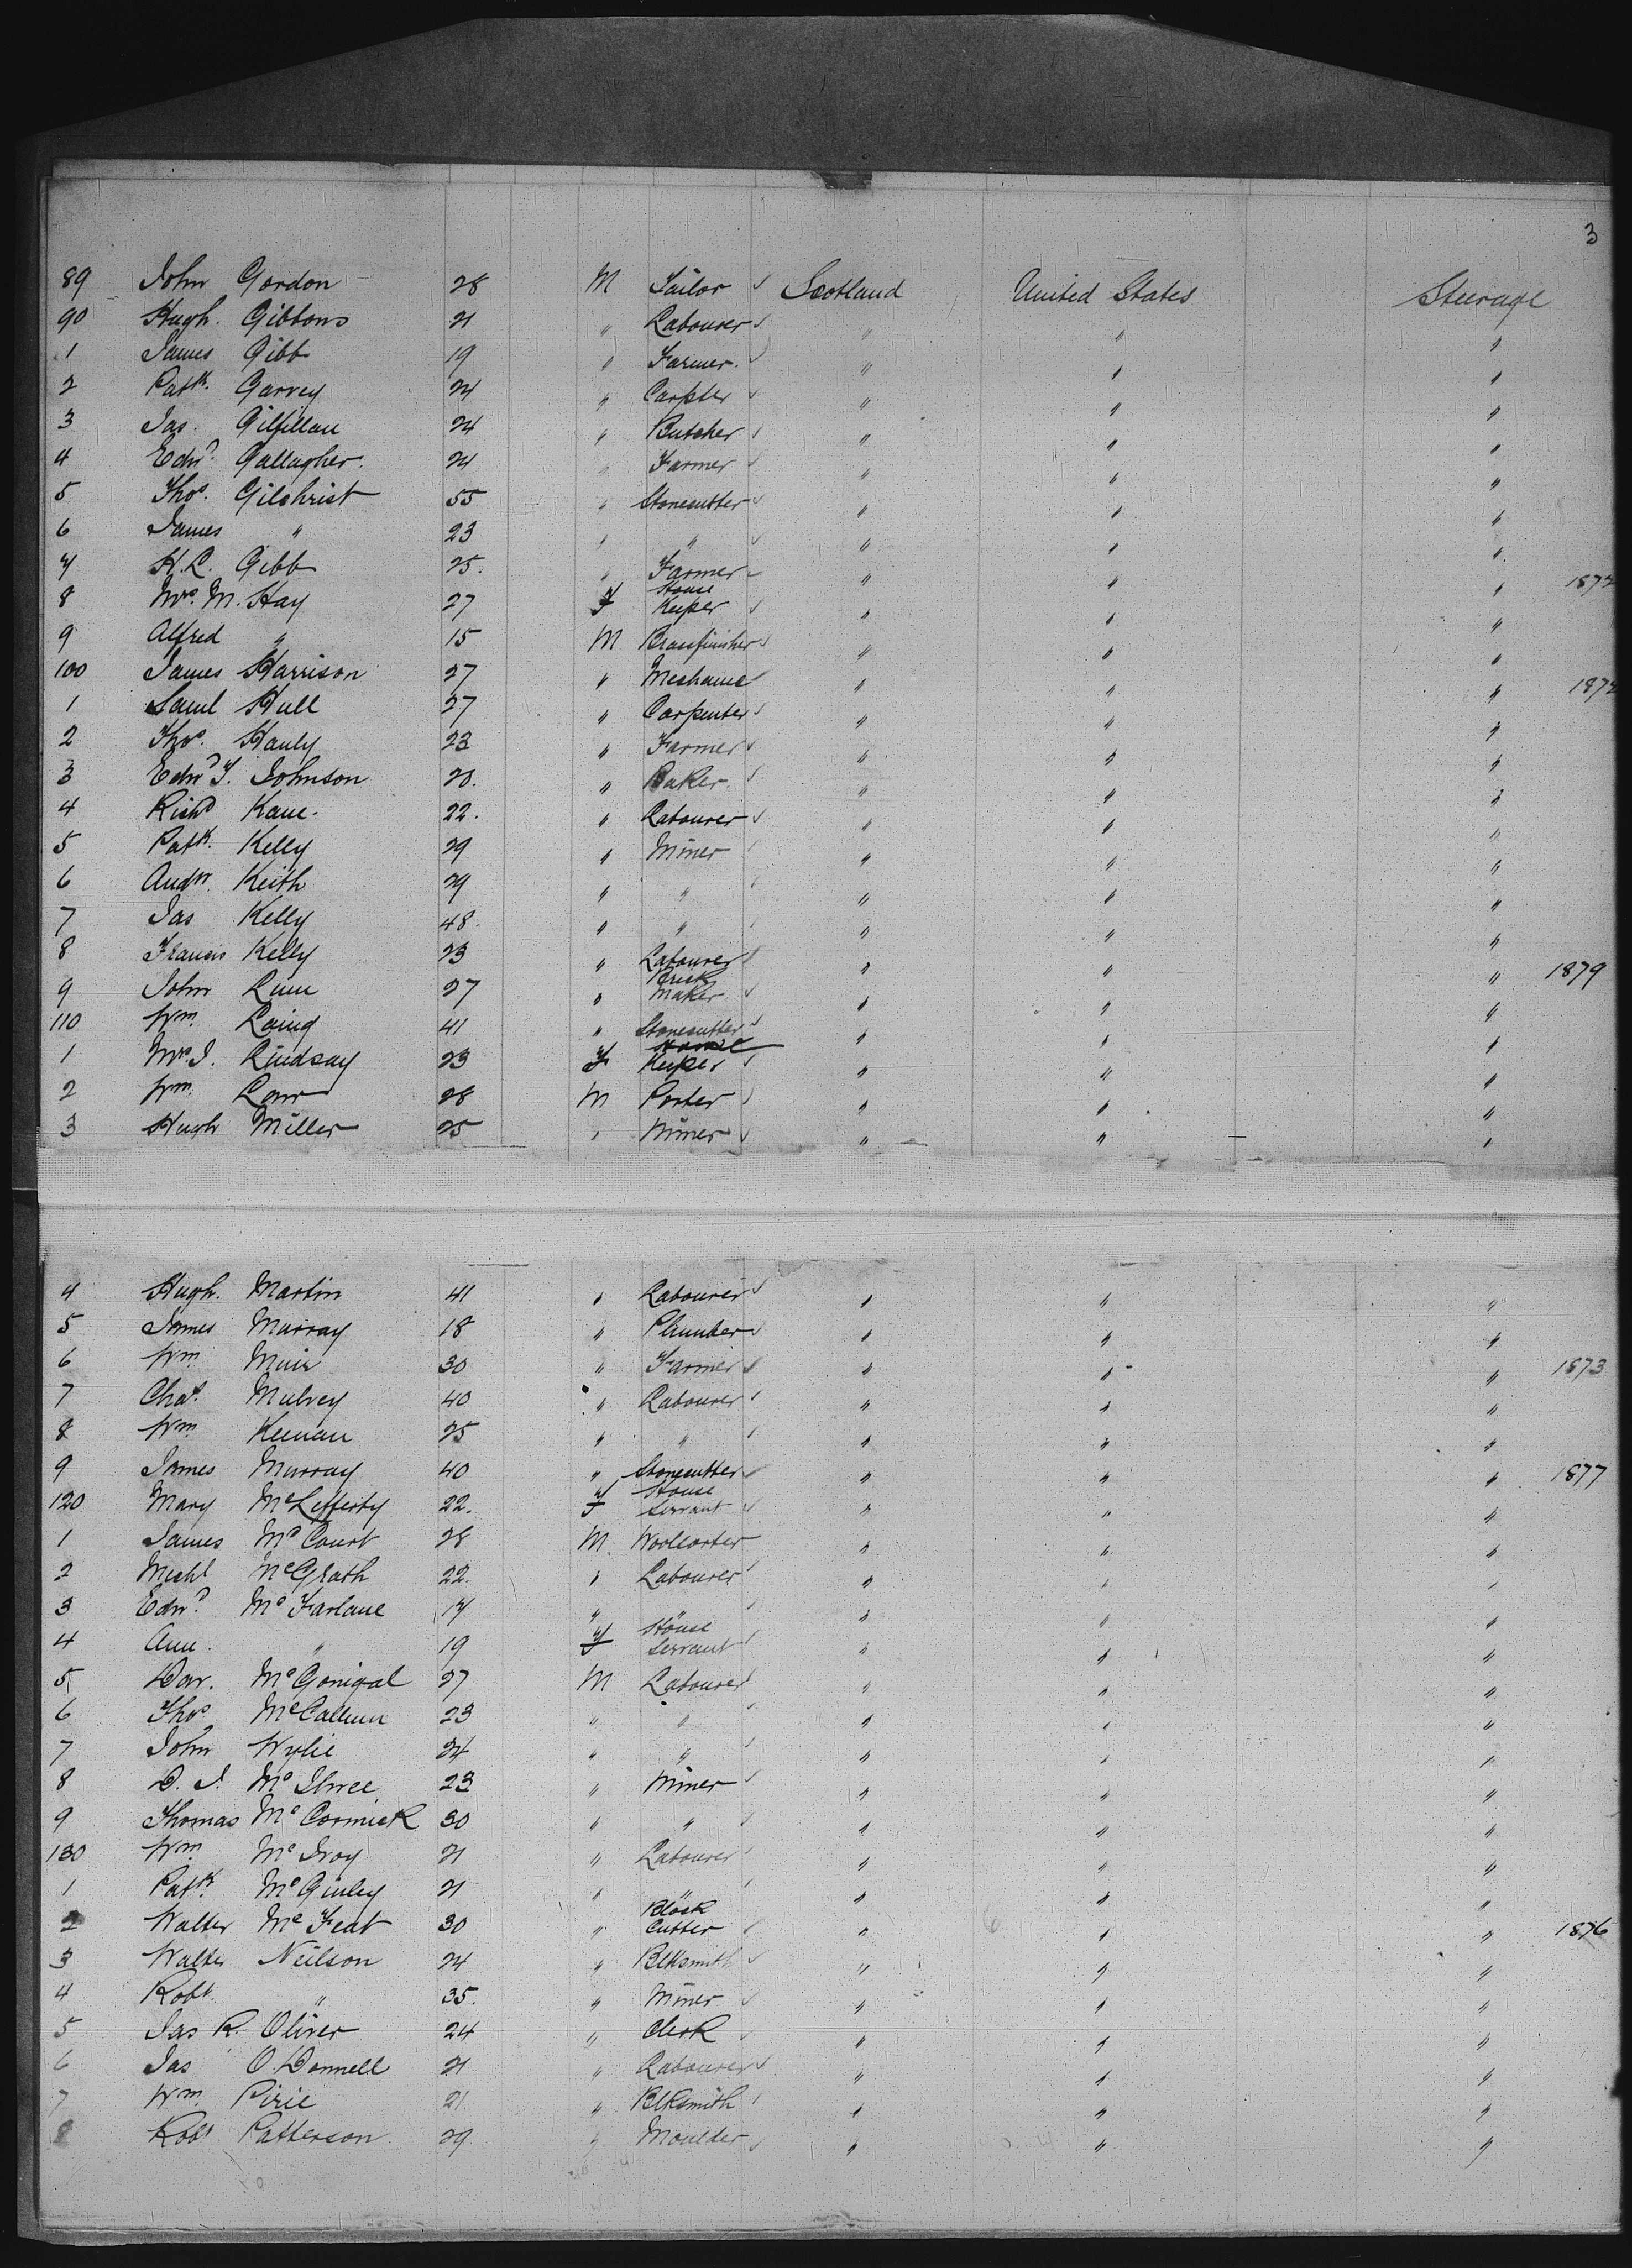 3
89 John Gordon 28 M Tailor ✓ Scotland United States Steerage
90 Hugh. Gibbons 21 " Labourer ✓ " " "
1 James Gibb 19 " Farmer. ✓ " " "
2 Patk. Garvey 24 " Carpter ✓ " " "
3 Jas. Gilfillan 24 " Butcher ✓ " " "
4 Edwd. Gallagher. 24 " Farmer ✓ " " "
5 Thos. Gilchrist 55 " Stonecutter ✓ " " "
6 James " 23 " " ✓ " " "
7 H.L. Gibb 25. " Farmer ✓ " " " 1872
8 Mrs. M. Hay 27 F House Keeper ✓ " " "
9 Alfred " 15 M Brassfinisher ✓ " " "
100 James Harrison 27 " Mechanic " " " 1872
1 Saml Hull 27 " Carpenter ✓ " " "
2 Thos. Hanly 23 " Farmer ✓ " " "
3 Edwd T. Johnson 20. " Baker. ✓ " " "
4 Richd Kane. 22. " Labourer ✓ " " "
5 Patk. Kelly 29 " Miner ✓ " " "
6 Andw. Keith 29 " " ✓ " " "
7 Jas Kelly 48. " " ✓ " " "
8 Francis Kelly 23 " Labourer ✓ " " " 1879
9 John 27 " Brick Maker ✓ " " "
110 Wm. Laing 41 " Stonecutter ✓ " " "
1 Mrs. J. Lindsay 23 F House Keeper ✓ " " "
2 Wm. Law 28 M Porter ✓ " " "
3 Hugh Miller 25 " Miner ✓ " " "
4 Hugh. Martin 41 " Labourer ✓ " " "
5 James Murray 18 " Plumber ✓ " " "
6 Wm Muir 30 " Farmer ✓ " " " 1873
7 Chas. Mulvey 40 " Labourer ✓ " " "
8 Wm. Keenan 25 " " ✓ " " "
9 James Murray 40 " Stonecutter ✓ " " " 1877
120 Mary McLefferty 22. F House Servant ✓ " " "
1 James McCourt 28 M. Woolsorter " " "
2 Michl McGrath 22. " Labourer ✓ " " "
3 Edwd. McFarlane 17 " " ✓ " " "
4 Ann. " 19 F House Servant ✓ " " "
5 Dav. McGonigal 27 M Labourer " " "
6 Thos McCallum 23 " " ✓ " " "
7 John Wylie 24 " " ✓ " " "
8 D. J. 23 " Miner ✓ " " "
9 Thomas McCormick 30 " " ✓ " " "
130 Wm McIroy 21 " Labourer ✓ " " "
1 Patk. McGinley 21 " " ✓ " " "
2 Walter McFeat 30 " Block Cutter ✓ " " " 1876
3 Walter Neilson 24 " Blksmith ✓ " " "
4 Robt. " 35. " Miner ✓ " " "
5 Jas R. Oliver 24 " Clerk ✓ " " "
6 Jas O'Donnell 21 " Labourer ✓ " " "
7 Wm. Pirie 21. " Blksmith ✓ " " "
8 Robt Patterson 29. " Moulder ✓ " " "